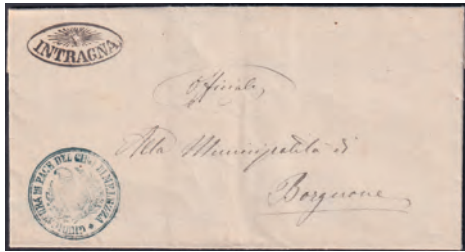 INTRAGNA
Officiale
Alla Municipalità di
Borgnone
PACE DEL